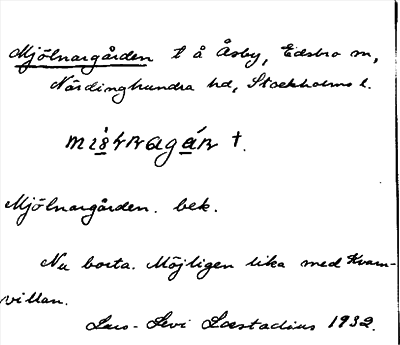 Mjölnargården t å Åsby, Edsbro sn,
Närdinghundra hd, Stockholms l.
Mjölnargården. bek.
Nu borta. Möjligen lika med Kvarn-
villan.
Lars-Levi Læstadius 1932.